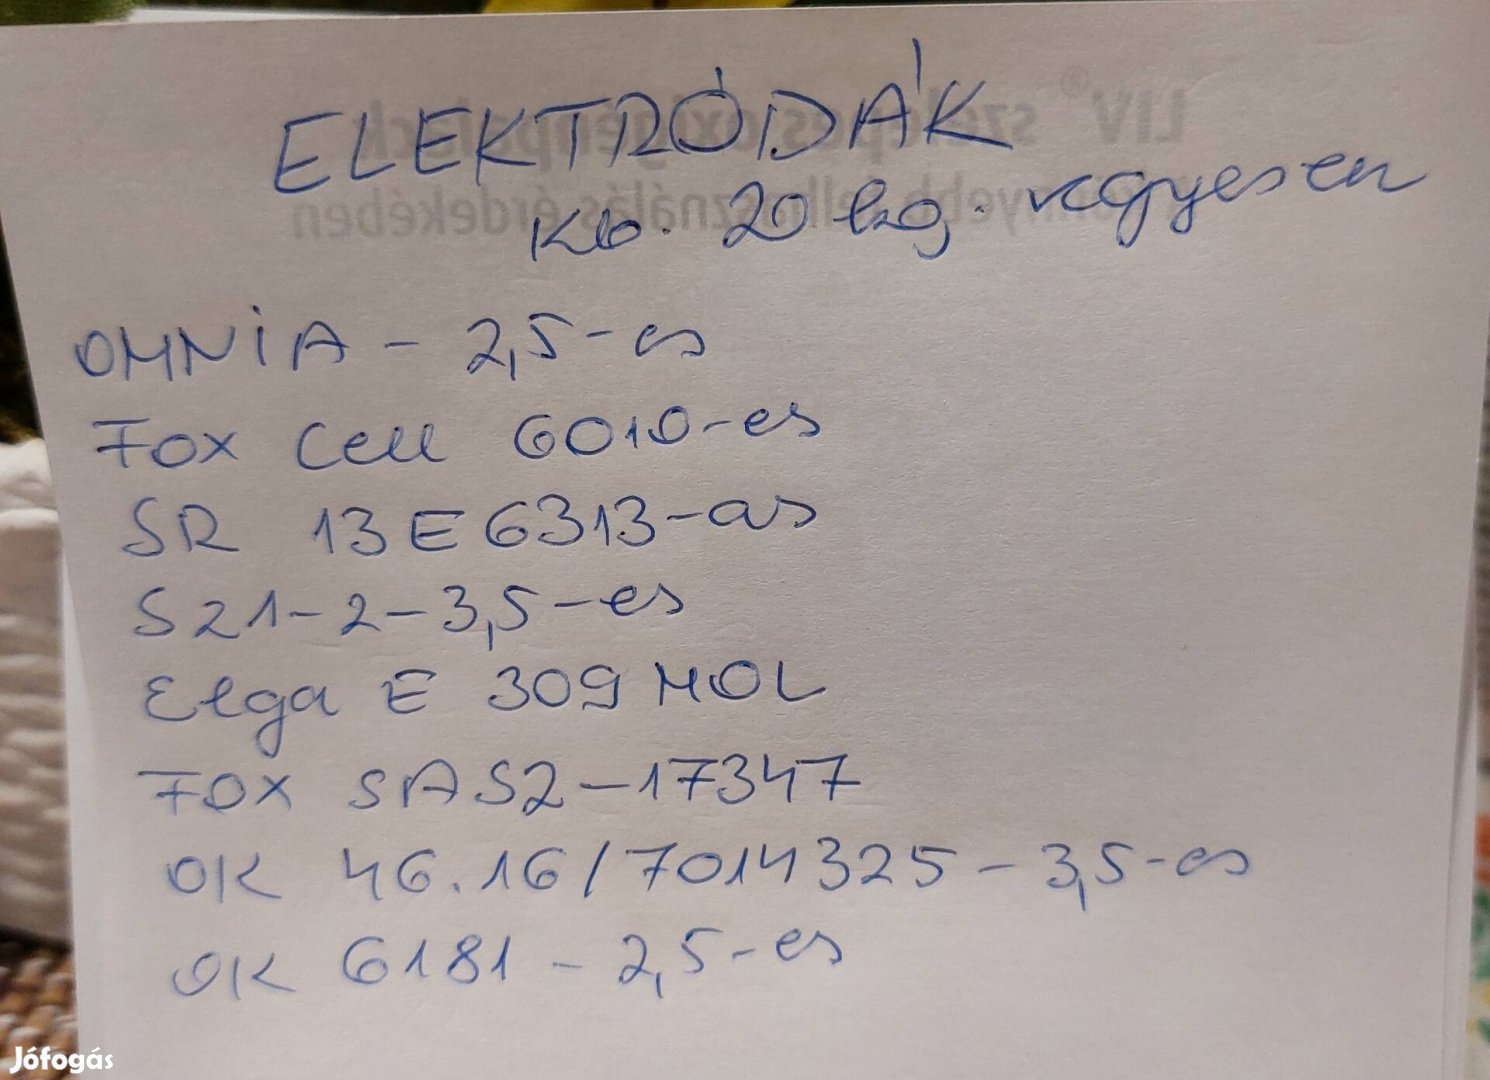 ELEKTRÓDÁK
Kb. 20 kg. vegyesen
OMNIA - 2,5-es
Fox Cell 6010-es
SR 13 E 6313-as
S21-2-3,5-es
Elga E 309 MOL
FOX SAS2-17347
OK 46.16/7014325-3,5-es
OK 6181 - 2,5-es
Jófogás